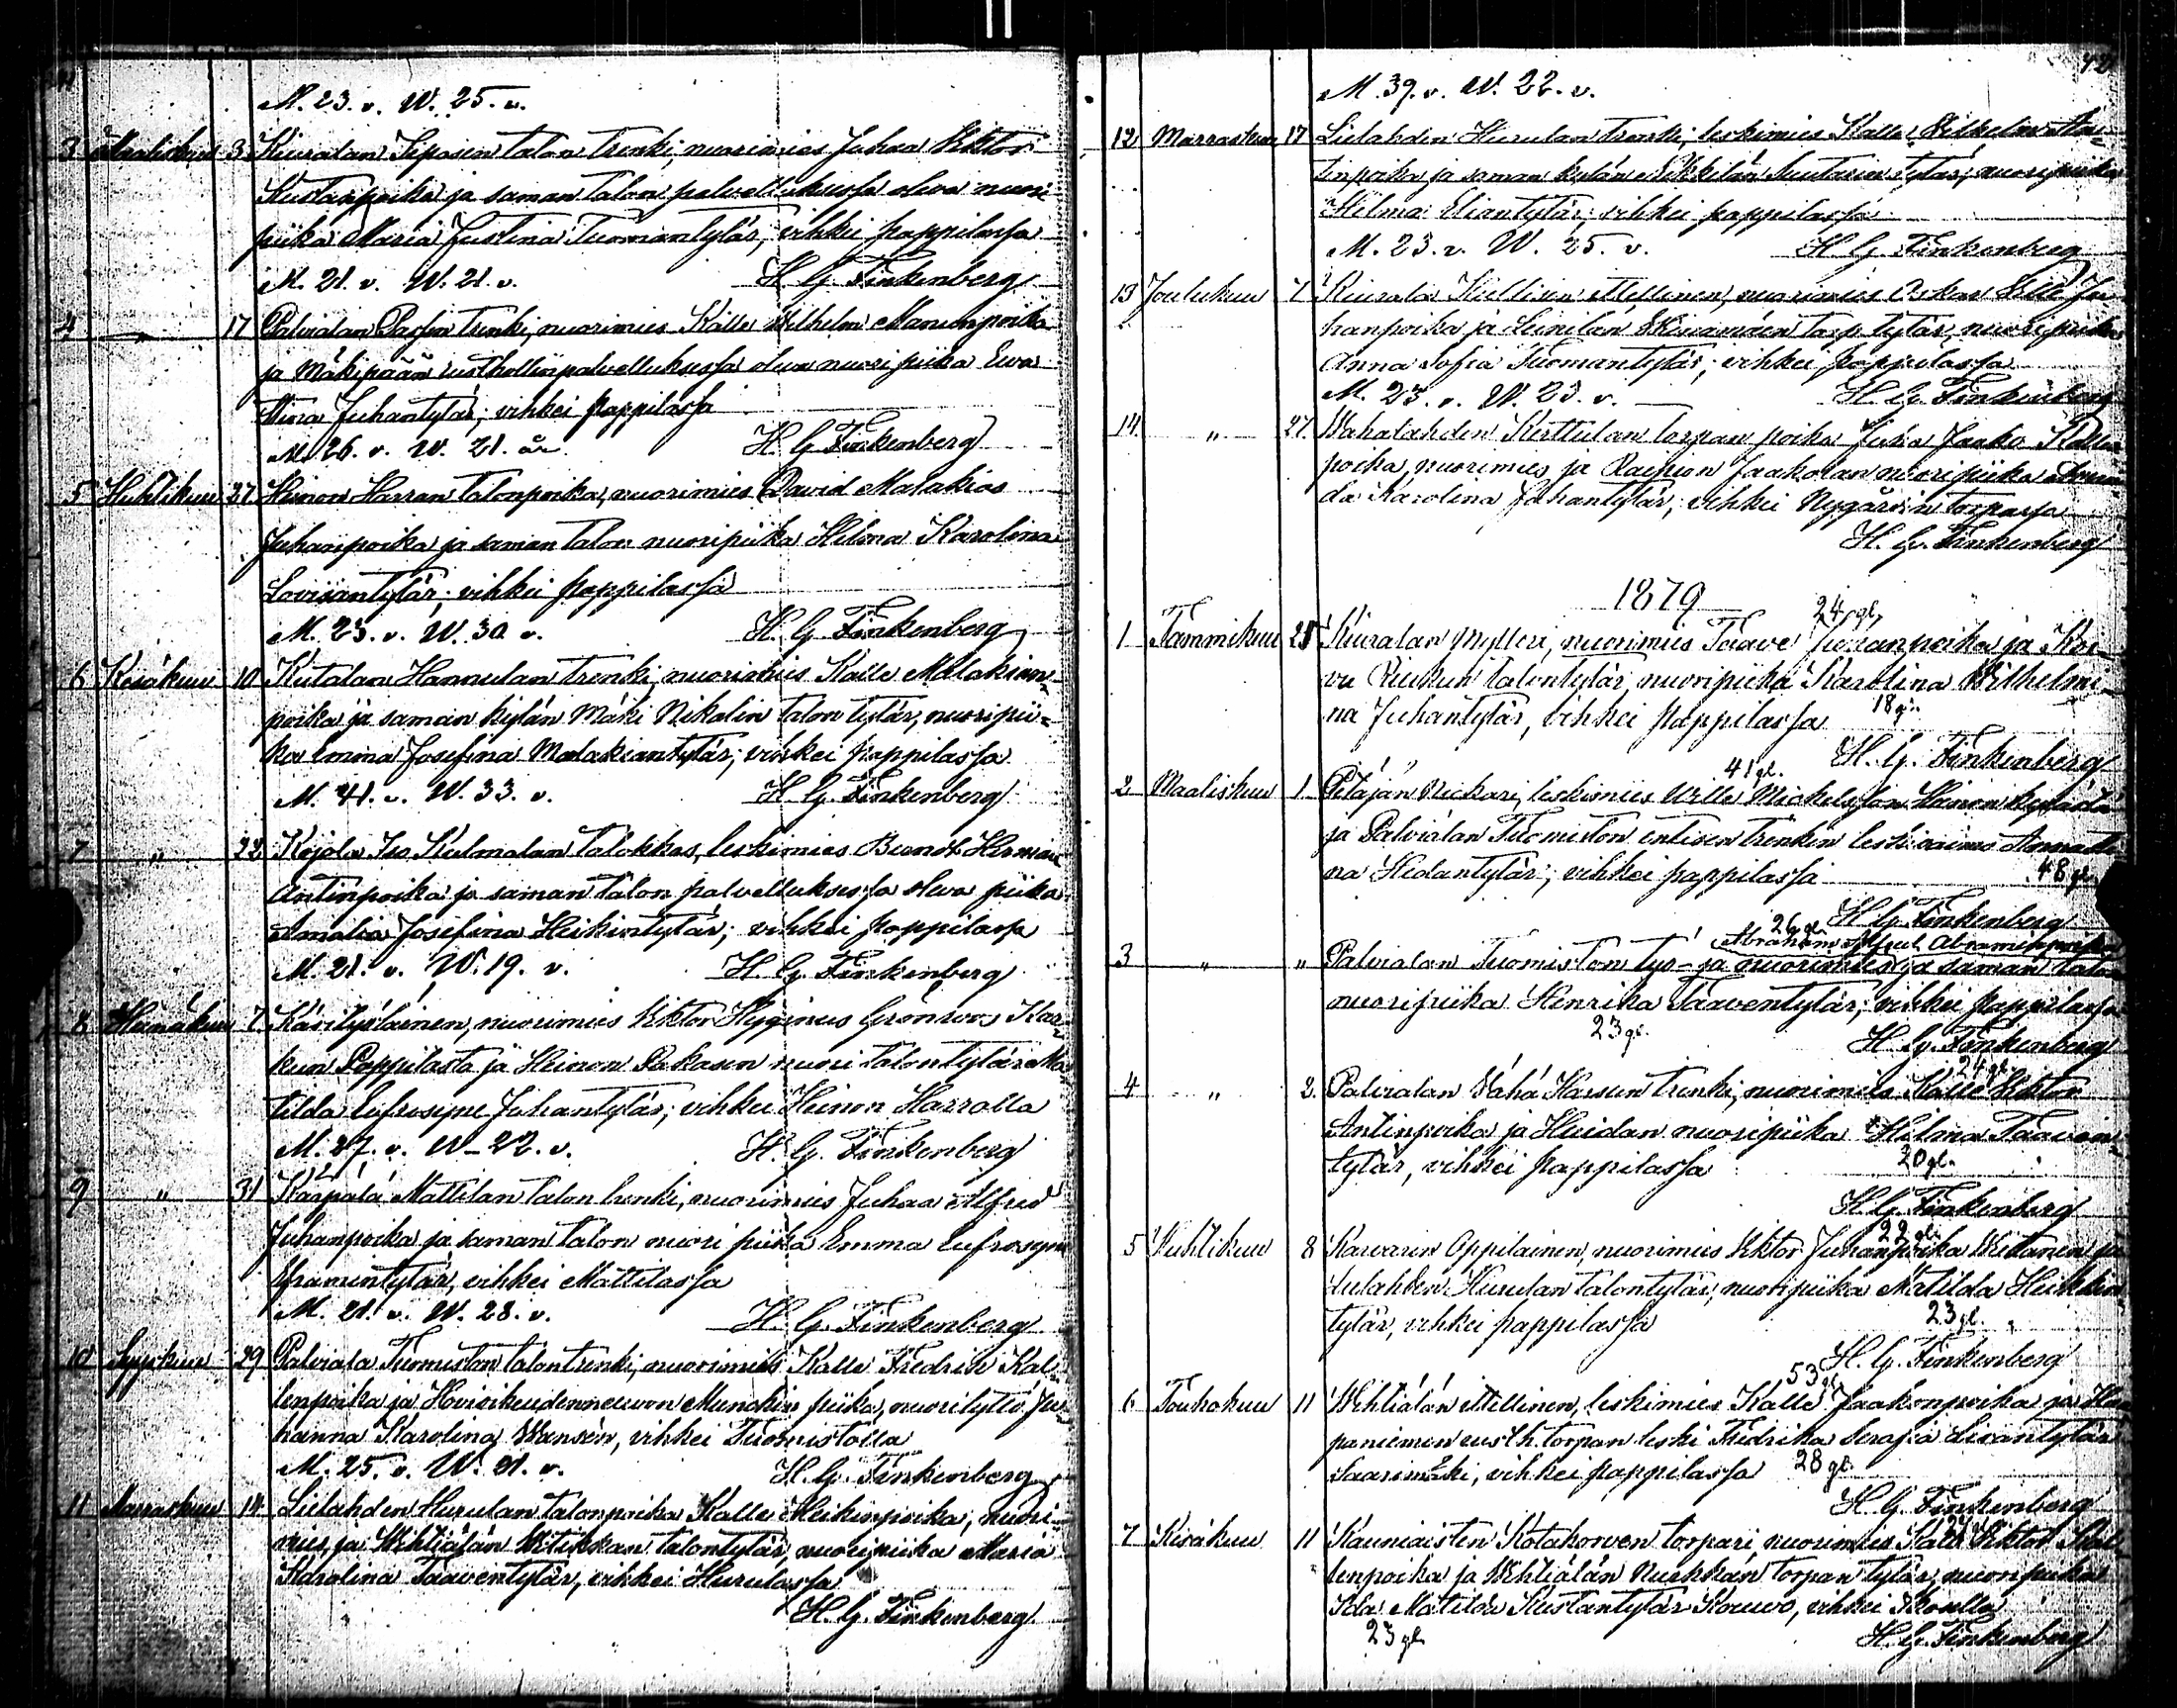 M. 23. v. W. 25. v.
3 Maaliskuu 3 Kiuralan Seposen talon trenki, nuorimies Juhaa Viktor
Kustaanpoika ja saman talon palvelluksessa oleva nuori
piika Maria Justina Tuomantytär, vihkei pappilassa
M. 21. v. W. 21. v. H. G. Finkenberg
4 " 17 Palvialan trenki, nuorimies Kalle Wilhelm Manunpoika
ja Mäkipään rusthollin palvelluksessa oleva nuoripiika Ewa
Juhantytär; vihkei pappilassa
M. 26. v. W. 21. år H. G. Finkenberg
5 Huhtikuu 27 Heinon Harran talonpoika, nuorimies David Malakias
Juhanpoika ja saman talon nuoripiika Hilma Karolina
Lovisantytär; vihkei pappilassa
M. 23. v. W. 30 v. H. G. Finkenberg
6 Kesäkuu 10 Kutalan Hannulan trenki, nuorimies Kalle Malakian-
poika ja saman kylän Mäki Nikalin talon tytär, nuoripii-
ka Emma Josefina Malakiantytär; vihkei pappilassa
M. 41. v. W. 33. v. H. G. Finkenberg
7 " 22 Kojola Iso Kulmalan talokkas, leskimies Berndt Herman
Antinpoika ja saman talon palvelluksessa oleva piika
Amalia Josefina Heikintytär; vihkei pappilassa
M. 21. v. W. 19. v. H. G. Finkenberg
8 Heinäkuu 7 nuorimies Viktor Hyginus Grönroos Kar-
kun Pappilasta ja Heinon Pakasen nuori talontytär Ma-
tilda Eufrosyne Juhantytär; vihkei Heinon Harralla
M. 27. v. W. 22. v. H. G. Finkenberg
9 " 31 Karpala Mattilan talon trenki, nuorimies Juhaa Alfred
Juhanpoika ja saman talon nuori piika Emma Eufrosyne
vihkei Mattilassa
M. 21. v. W. 28. v. H. G. Finkenberg
10 Syyskuu 29 Palviala Tuomistan talon trenki, nuorimies Kalle Fredrik Kal-
lenpoika ja Hovioikeudenneuvon Munckin piika, nuorityttö Ju-
hanna Karolina vihkei Tuomistolla
M. 25. v. W. 21. v. H. G. Finkenberg
11 Marraskuu 14 Lielahden Hurulan talonpoika Kalle Heikinpoika, nuori-
mies ja Wehtiälän talontytär, nuoripiika Maria
Karolina Taaventytär, vihkei Hurulassa
H. G. Finkenberg
42
M. 39. v. W. 22. v.
12 Marraskuu 17 Lielahden Hurulan trenki, leskimies Kalle Wilhelm An-
tinpoika ja saman kylän tytär, nuoripiika
Hilma Eliantytär; vihkei pappilassa
M. 23. v. W. 25. v. H. G. Finkenberg
13 Joulukuu 7 Kiurala nuorimies Oskar Ville Ju-
hanpoika ja Leinilän torp. tytär, nuoripiika
Anna Sofia Tuomantytär; vihkei pappilassa
M. 25. v. W. 23. v. H. G. Finkenberg
14 " 27. Wahalahden Kerttulan torpan poika Juha Jaako Kalle
poika, nuorimies ja Raipion Jaakolan nuoripiika
Karolina Juhantytär; vihkei Nygårdin torpassa
H. G. Finkenberg
1879
24 gl.
1 Tammikuu 28 Kiuralan Mylleri, nuorimies Taave Juhanpoika ja
talontytär, nuoripiika Karolina Wilhelmi-
na Juhantytär, vihkei pappilassa 18 gl.
H. G. Finkenberg
41 gl.
2 Maaliskuu 1 Petäjän Nickari, leskimies Wille Heinon kylästä
ja Palvialan Tuomiston entisen trenkin leskivaimo
na Hedantytär; vihkei pappilassa 48 gl.
H. G. Finkenberg
26 gl.
Abraham Abraminpoika
3 " " Palvialan Tuomiston nuorimies ja saman talon
nuoripiika Henrika Taaventytär; vihkei pappilassa
23 gl. H. G. Finkenberg
24 gl.
4 " 2. Palvialan Vähä Hassun trenki, nuorimies Kalle Viktor
Antinpoika ja Huidan nuoripiika Hilma Taavin-
tytär, vihkei pappilassa 20 gl.
H. G. Finkenberg
22 gl.
5 Huhtikuu 8 Karvasen Oppilainen, nuorimies Viktor Juhanpoika ja
Lielahden Hurulan talontytär, nuoripiika Matilda Heikkin
tytär, vihkei pappilassa 23 gl.
H. G. Finkenberg
53 gl.
6 Toukokuu 11 Wehtiälän leskimies Kalle Jaakonpoika ja
paniemen rusth. torpan leski Fredrika Serafia
Saarimäki, vihkei pappilassa 28 gl.
H. G. Finkenberg
7 Kesäkuu 11 Kauniaisten Kotakorven torpari, nuorimies Kalle Viktor Kal-
lenpoika ja Wehtiälän torpan tytär, nuoripiika
Ida Matilda Kustantytär vihkei
23 gl. H. G. Finkenberg